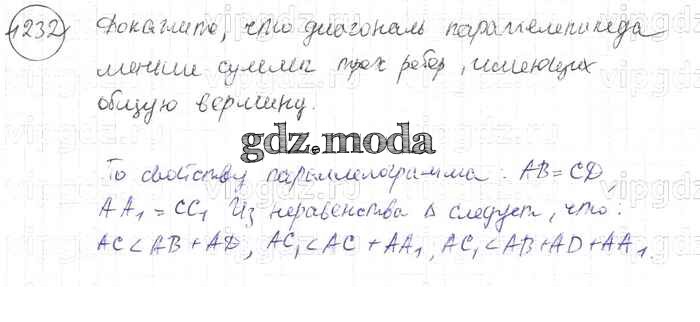 1232 Докажите, что диагональ параллелепипеда
меньше суммы трех ребер, имеющих
общую вершину.
gdz.moda
По свойству параллелограмма: AB = CD,
AA₁ = CC₁ Из неравенства Δ следует, что:
AC < AB + AD, AC₁ < AC + AA₁, AC₁ < AB + AD + AA₁.